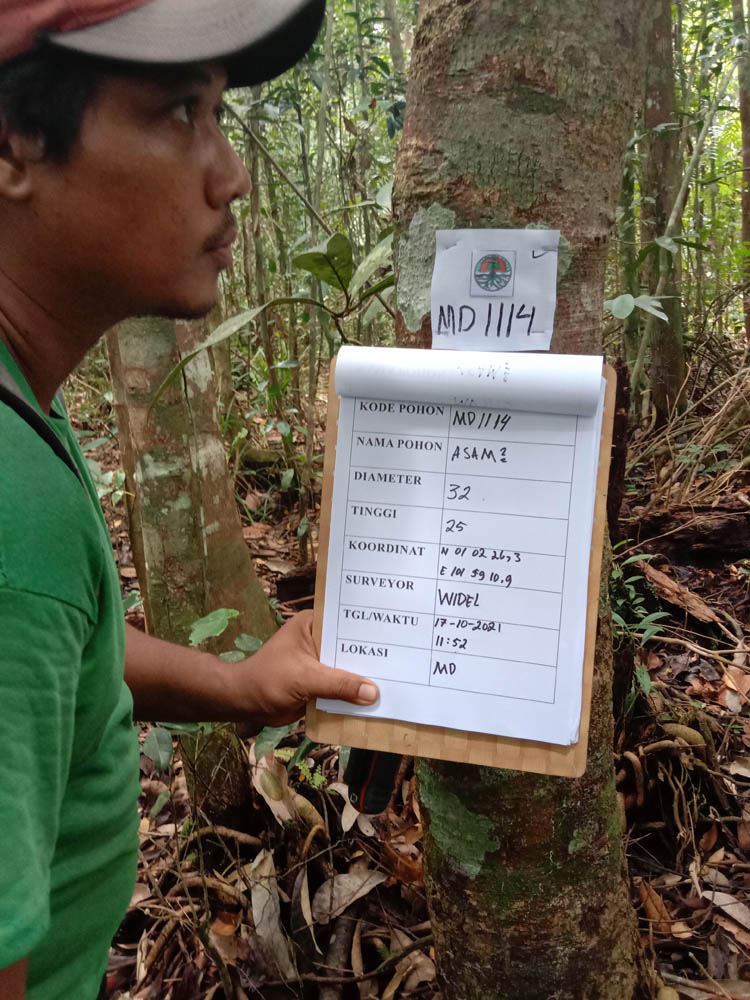 MD1114
KODE POHON MD1114
NAMA POHON ASAM2
DIAMETER 32
TINGGI 25
KOORDINAT N 01 02 26,3
E 101 59 10,9
SURVEYOR WIDEL
TGL/WAKTU 17-10-2021
11:52
LOKASI MD